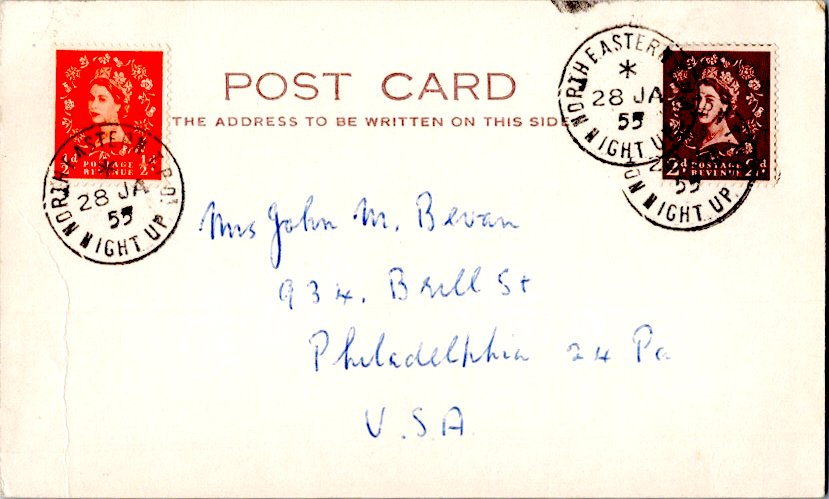 POST CARD
THE ADDRESS TO BE WRITTEN ON THIS SIDE
½d POSTAGE ½d
REVENUE
2d POSTAGE 2d
REVENUE
NORTH EASTERN T.P.O.
28 JA
55
NIGHT UP
NORTH EASTERN
28 JA
55
NIGHT UP
55
NIGHT UP
Mrs John M. Bevan
934. Brill St
Philadelphia 24 Pa
U.S.A